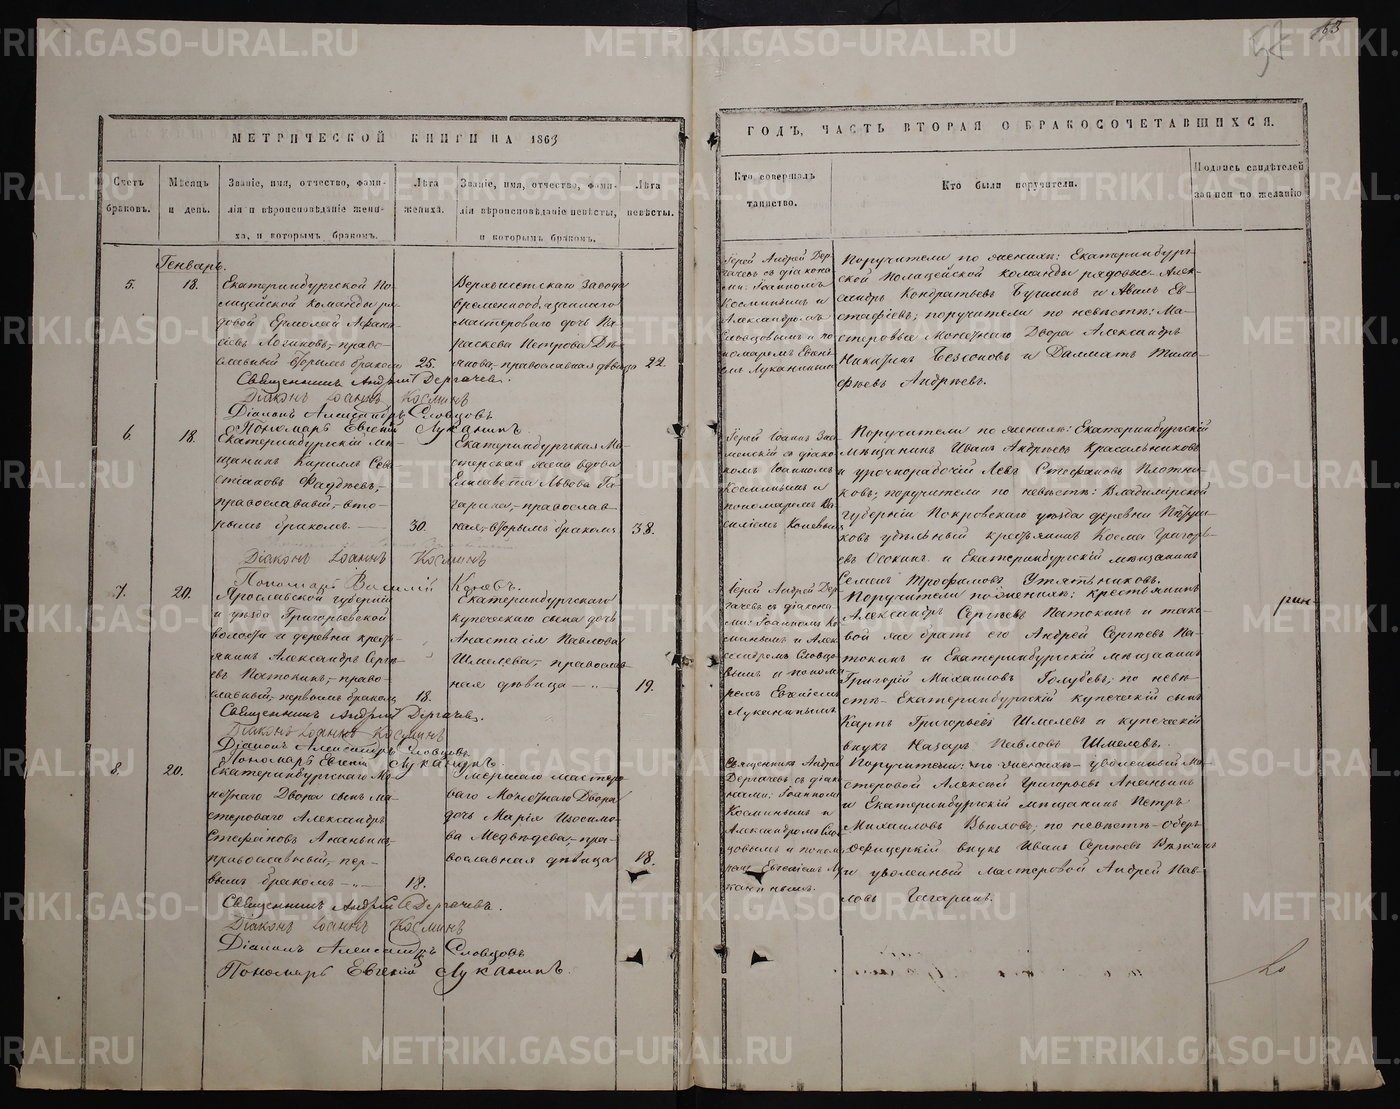 МЕТРИЧЕСКОЙ КНИГИ НА 1863
Счетъ браковъ.
Мѣсяцъ и день.
Званіе, имя, отчество, фами-
лія и вѣроисповѣданіе жени-
ха, и которымъ бракомъ.
Лѣта жениха.
Званіе, имя, отчество, фами-
лія вѣроисповѣданіе невѣсты,
и которымъ бракомъ.
Лѣта невѣсты.
Генварь.
5.
18.
Екатеринбургской По-
лицейской команды ря-
довой Ермолай Афана-
сіевъ Логиновъ, право-
славный вторымъ бракомъ
25.
Верхъисетскаго Завода
временнообязаннаго
мастероваго дочь Па-
раскева Петрова
православная дѣвица
22.
Священникъ Андрей Дергачевъ.
Діаконъ Іоаннъ Косминъ
Діаконъ Александръ Словцовъ
Пономарь Евгеній Луканинъ.
6.
18.
Екатеринбургскій мѣ-
щанинъ Кириллъ Сева-
стіановъ
православный, вто-
рымъ бракомъ
30.
Екатеринбургская Ма-
стерская жена вдова
Елисавета Львова Га-
гарина, православ-
ная, вторымъ бракомъ
38.
Діаконъ Іоаннъ Косминъ
Пономарь Василій Колевъ.
7.
20.
Ярославской губерніи
и уѣзда Григорьевской
волости и деревни кресть-
янинъ Александръ Серге-
евъ Патокинъ, право-
славный, первымъ бракомъ
18.
Екатеринбургскаго
купеческаго сына дочь
Анастасія Павлова
Шмелева, православ-
ная дѣвица
19.
Священникъ Андрей Дергачевъ.
Діаконъ Іоаннъ Косминъ
Діаконъ Александръ Словцовъ.
Пономарь Евгеній Луканинъ.
8.
20.
Екатеринбургскаго Мо-
нетнаго Двора сынъ ма-
стероваго Александръ
Стефановъ Ананьинъ
православный, пер-
вымъ бракомъ
18.
Умершаго мастеро-
ваго Монетнаго Двора
дочь Марія Изосимо-
ва Медвѣдева, пра-
вославная дѣвица
18.
Священникъ Андрей Дергачевъ.
Діаконъ Іоаннъ Косминъ
Діаконъ Александръ Словцовъ
Пономарь Евгеній Луканинъ.
ГОДЪ, ЧАСТЬ ВТОРАЯ О БРАКОСОЧЕТАВШИХСЯ.
Кто совершалъ
таинство.
Кто были поручители.
Подпись свидѣтелей
записи по желанію
Іерей Андрей Дер-
гачевъ съ діакона-
ми: Іоанномъ
Косминымъ и
Александромъ
Словцовымъ и по-
номаремъ Евгені-
емъ Луканинымъ
Поручители по женихѣ: Екатеринбург-
ской Полицейской команды рядовые Алек-
сандръ Кондратьевъ и Ев-
стафіевъ; поручители по невѣстѣ: Ма-
стеровые Монетнаго Двора Александръ
Никитинъ Безсоновъ и Далматъ Тимо-
феевъ Андреевъ.
Іерей Іоаннъ Зна-
менскій съ діако-
номъ Іоанномъ
Косминымъ и
пономаремъ Ва-
силіемъ Колевымъ
Поручители по женихѣ: Екатеринбургскій
мѣщанинъ Иванъ Андреевъ Красильниковъ
и урочнорабочій Левъ Стефановъ Плотни-
ковъ; поручители по невѣстѣ: Владимірской
губерніи Покровскаго уѣзда деревни
удѣльный крестьянинъ Косма Григорь-
евъ Осокинъ и Екатеринбургскій мѣщанинъ
Семенъ Трофимовъ Утятниковъ.
Іерей Андрей Дер-
гачевъ съ діакона-
ми: Іоанномъ Ко-
сминымъ и Алек-
сандромъ Словцо-
вымъ и понома-
ремъ Евгеніемъ
Луканинымъ
Поручители по женихѣ: крестьянинъ
Александръ Сергѣевъ Патокинъ и тако-
вой же братъ его Андрей Сергѣевъ Па-
токинъ и Екатеринбургскій мѣщанинъ
Григорій Михаиловъ Голубевъ; по невѣ-
стѣ Екатеринбургскій купеческій сынъ
Карпъ Григорьевъ Шмелевъ и купеческій
внукъ Назаръ Павловъ Шмелевъ.
Священникъ Андрей
Дергачевъ съ діако-
нами: Іоанномъ
Косминымъ и
Александромъ Сло-
вцовымъ и понома-
ремъ Евгеніемъ Лу-
канинымъ.
Поручители: по женихѣ уволенный Ма-
стеровой Алексѣй Григорьевъ Ананьинъ
и Екатеринбургскій мѣщанинъ Петръ
Михаиловъ Вьюховъ; по невѣстѣ Оберъ
офицерскій внукъ Иванъ Сергѣевъ Вяткинъ
и уволенный Мастеровой Андрей Пав-
ловъ Гагаринъ.